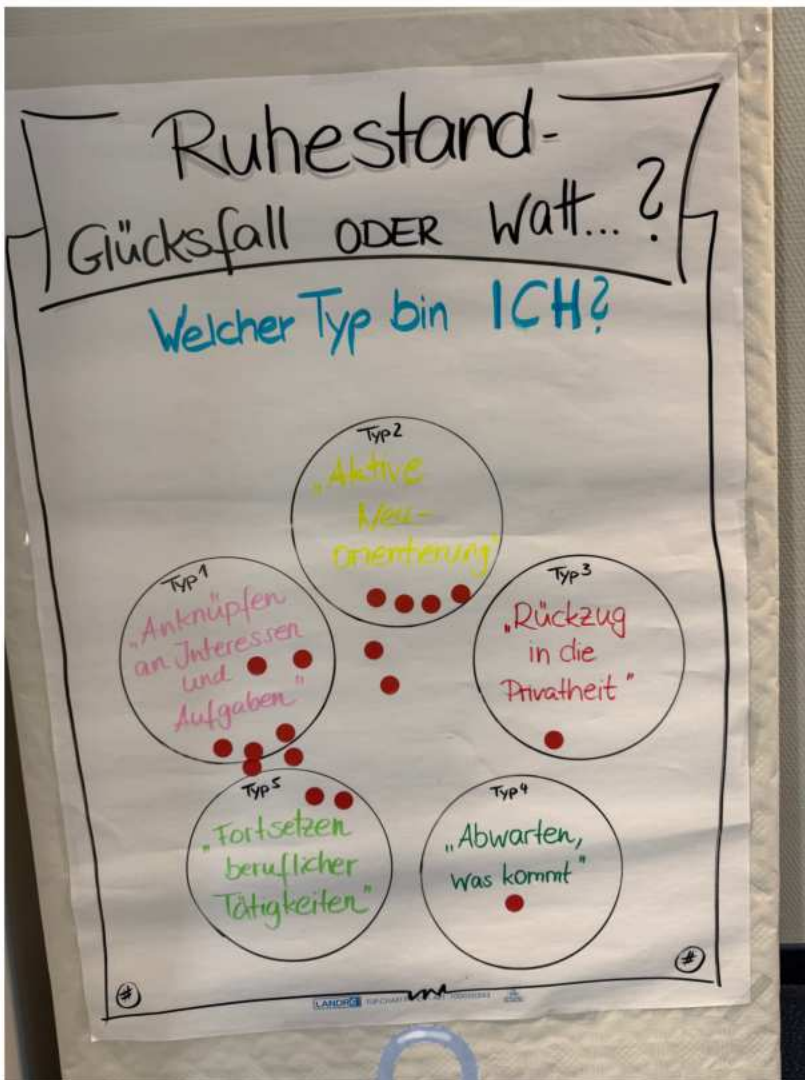 Ruhestand-
Glücksfall ODER Watt...?
Welcher Typ bin ICH?
Typ 2
„Aktive
Neu-
orientierung"
Typ 1
„Anknüpfen
an Interessen
und
Aufgaben"
Typ 3
„Rückzug
in die
Privatheit"
Typ 5
„Fortsetzen
beruflicher
Tätigkeiten"
Typ 4
„Abwarten,
was kommt"
#
#
LANDRÉ